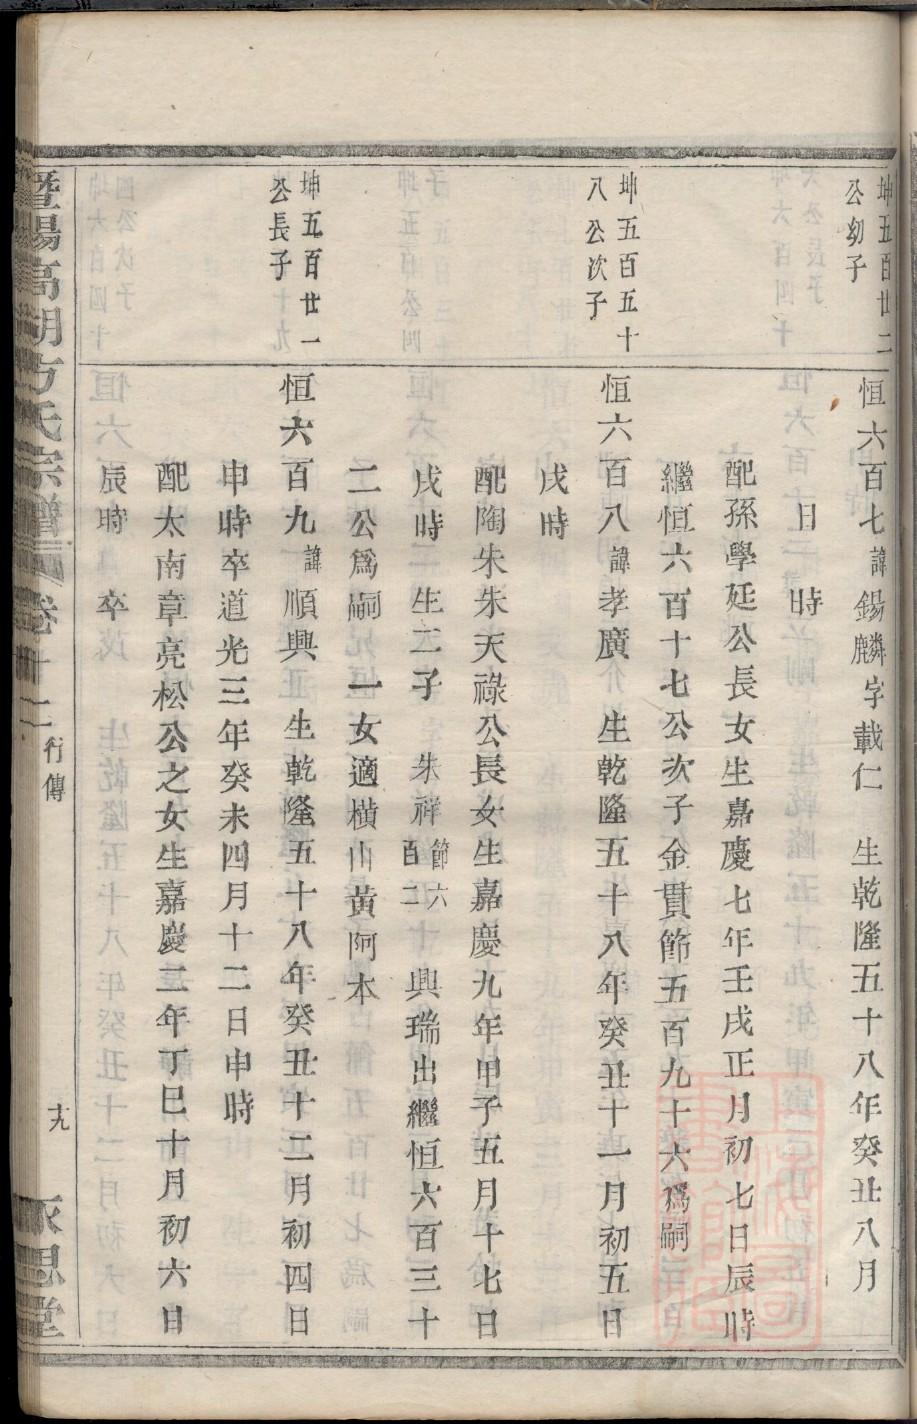 坤五百廿二
公幼子
恒六百七諱錫麟字載仁 生乾隆五十八年癸丑八月
日 時
配孫學延公長女生嘉慶七年壬戌正月初七日辰時
繼恒六百十七公次子金貫節五百九十六爲嗣
坤五百五十
八公次子
恒六百八諱孝廣 生乾隆五十八年癸丑十一月初五日
戌時
配陶朱朱天祿公長女生嘉慶九年甲子五月十七日
戌時 生二子 朱祥節六百二 興瑞出繼恒六百三十
二公爲嗣 一女適橫山黃阿本
坤五百廿一
公長子
恒六百九諱順興 生乾隆五十八年癸丑十二月初四日
申時卒道光三年癸未四月十二日申時
配太南章亮松公之女生嘉慶二年丁巳十月初六日
辰時 卒
暨陽高湖方氏宗譜 卷十二 行傳 十九 永思堂